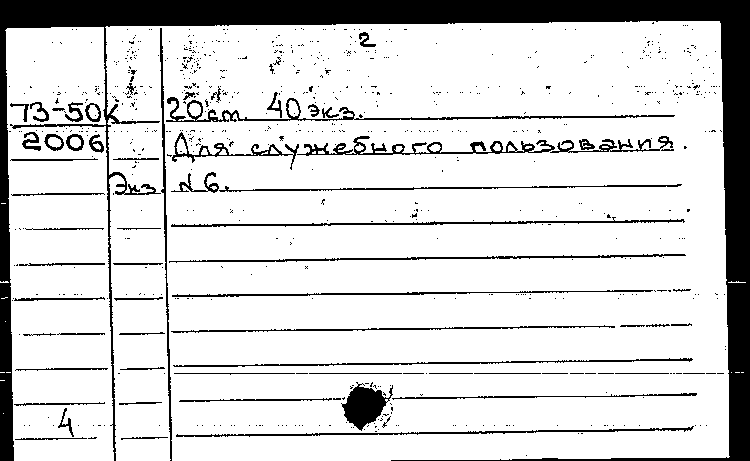 2
73-50к 20 ст. 40 экз.
2006 Для служебного пользования.
Экз. N 6.
4